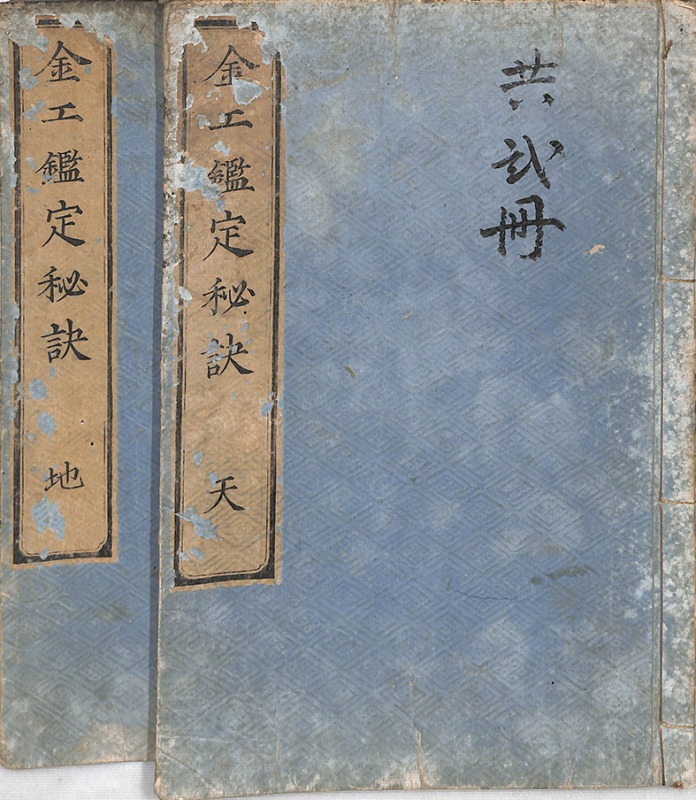 共弐冊
金工鑑定秘訣 天
金工鑑定秘訣 地